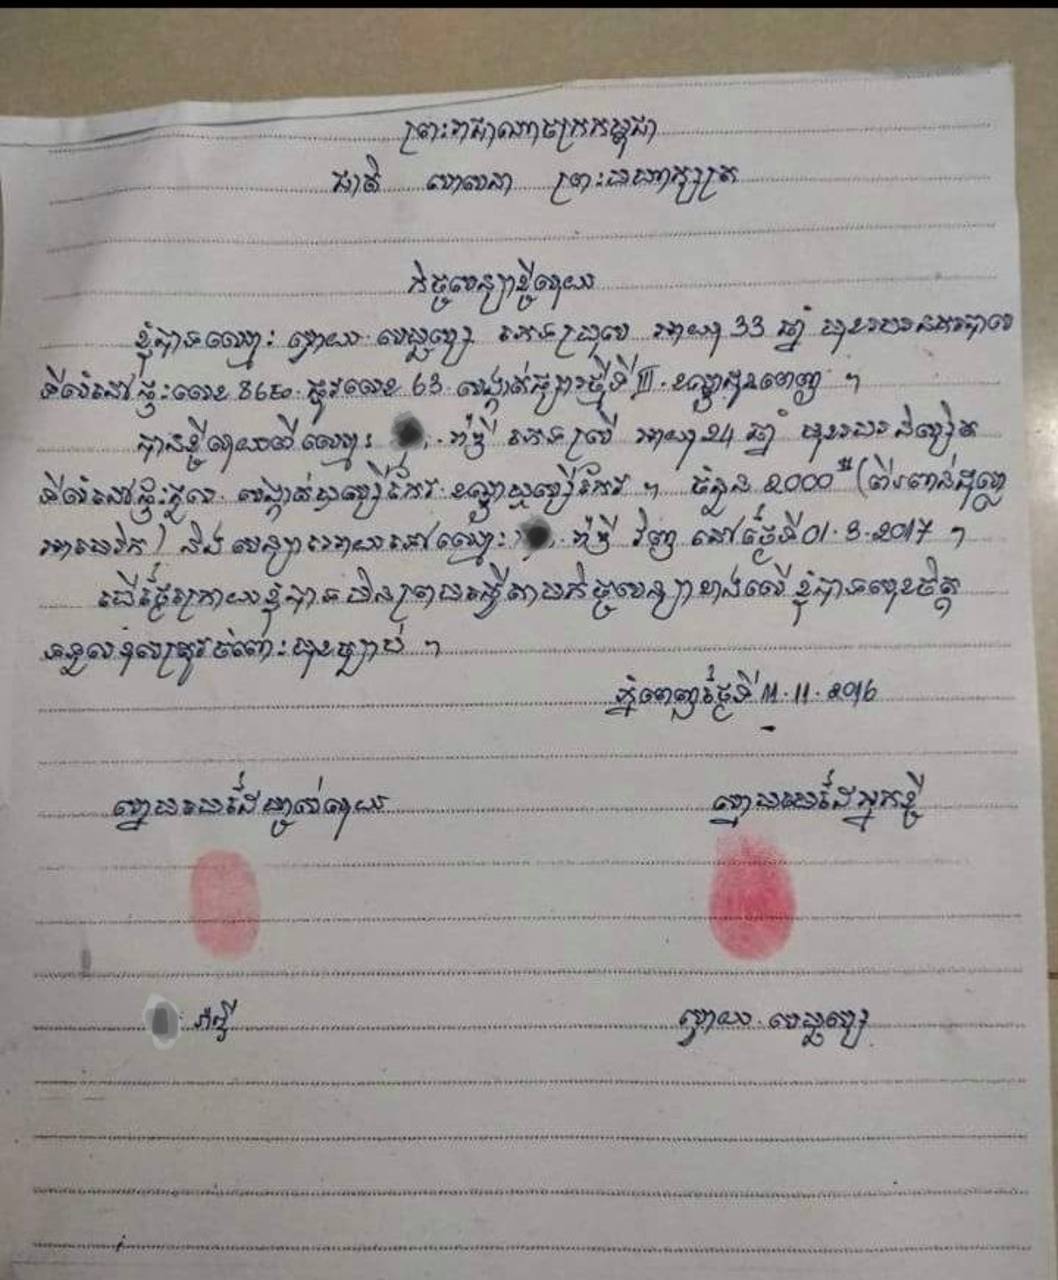 ព្រះរាជាណាចក្រកម្ពុជា
ជាតិ សាសនា ព្រះមហាក្សត្រ
កិច្ចសន្យាខ្ចីលុយ
ខ្ញុំបាទឈ្មោះ ភេទប្រុស អាយុ 33 ឆ្នាំ មុខរបរនគរបាល
ទីលំនៅផ្ទះលេខ ផ្លូវលេខ 63 សង្កាត់ផ្សារថ្មីទី III ខណ្ឌដូនពេញ ។
បានខ្ចីលុយពីឈ្មោះ ភេទស្រី អាយុ 24 ឆ្នាំ មុខរបរ និស្សិត
ទីលំនៅផ្ទះជួល សង្កាត់ឫស្សីកែវ ខណ្ឌឫស្សីកែវ ។ ចំនួន 2000$ (ពីរពាន់ដុល្លា
អាមេរិក) និងសន្យាសងទៅឈ្មោះ វិញ នៅថ្ងៃទី 01.3.2017 ។
បើថ្ងៃក្រោយខ្ញុំបាទមិនព្រមធ្វើតាមកិច្ចសន្យាខាងលើ ខ្ញុំបាទសុខចិត្ត
ទទួលខុសត្រូវចំពោះមុខច្បាប់ ។
ភ្នំពេញថ្ងៃទី 11.11.2016
ស្នាមមេដៃម្ចាស់លុយ ស្នាមមេដៃអ្នកខ្ចី